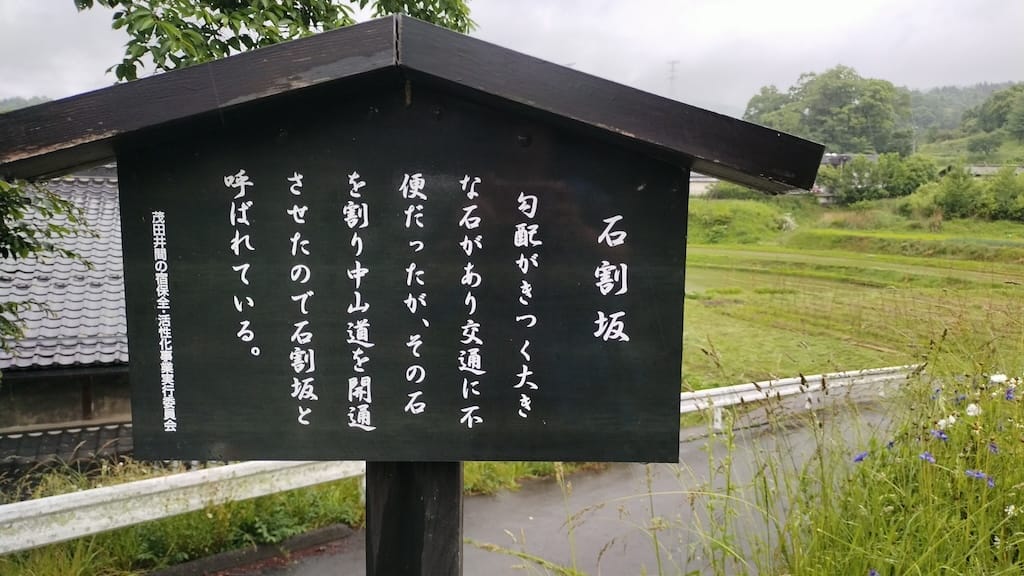 石割坂
勾配がきつく大き
な石があり交通に不
便だったが、その石
を割り中山道を開通
させたので石割坂と
呼ばれている。
茂田井間の宿保全・活性化事業実行委員会